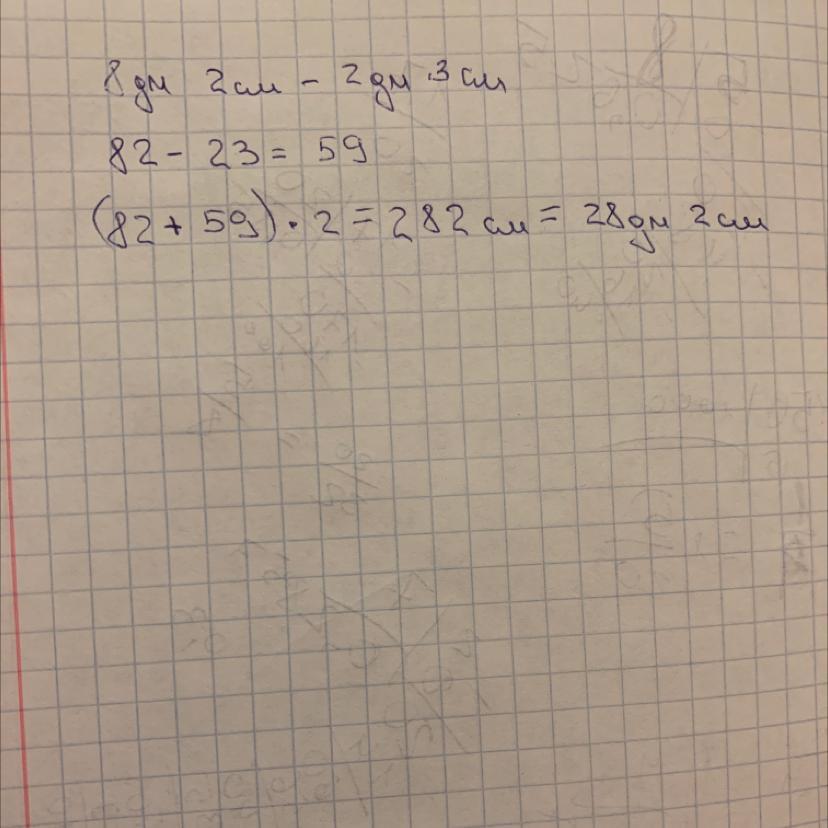 8дм 2см - 2дм 3см
82 - 23 = 59
(82 + 59) · 2 = 282 см = 28дм 2см